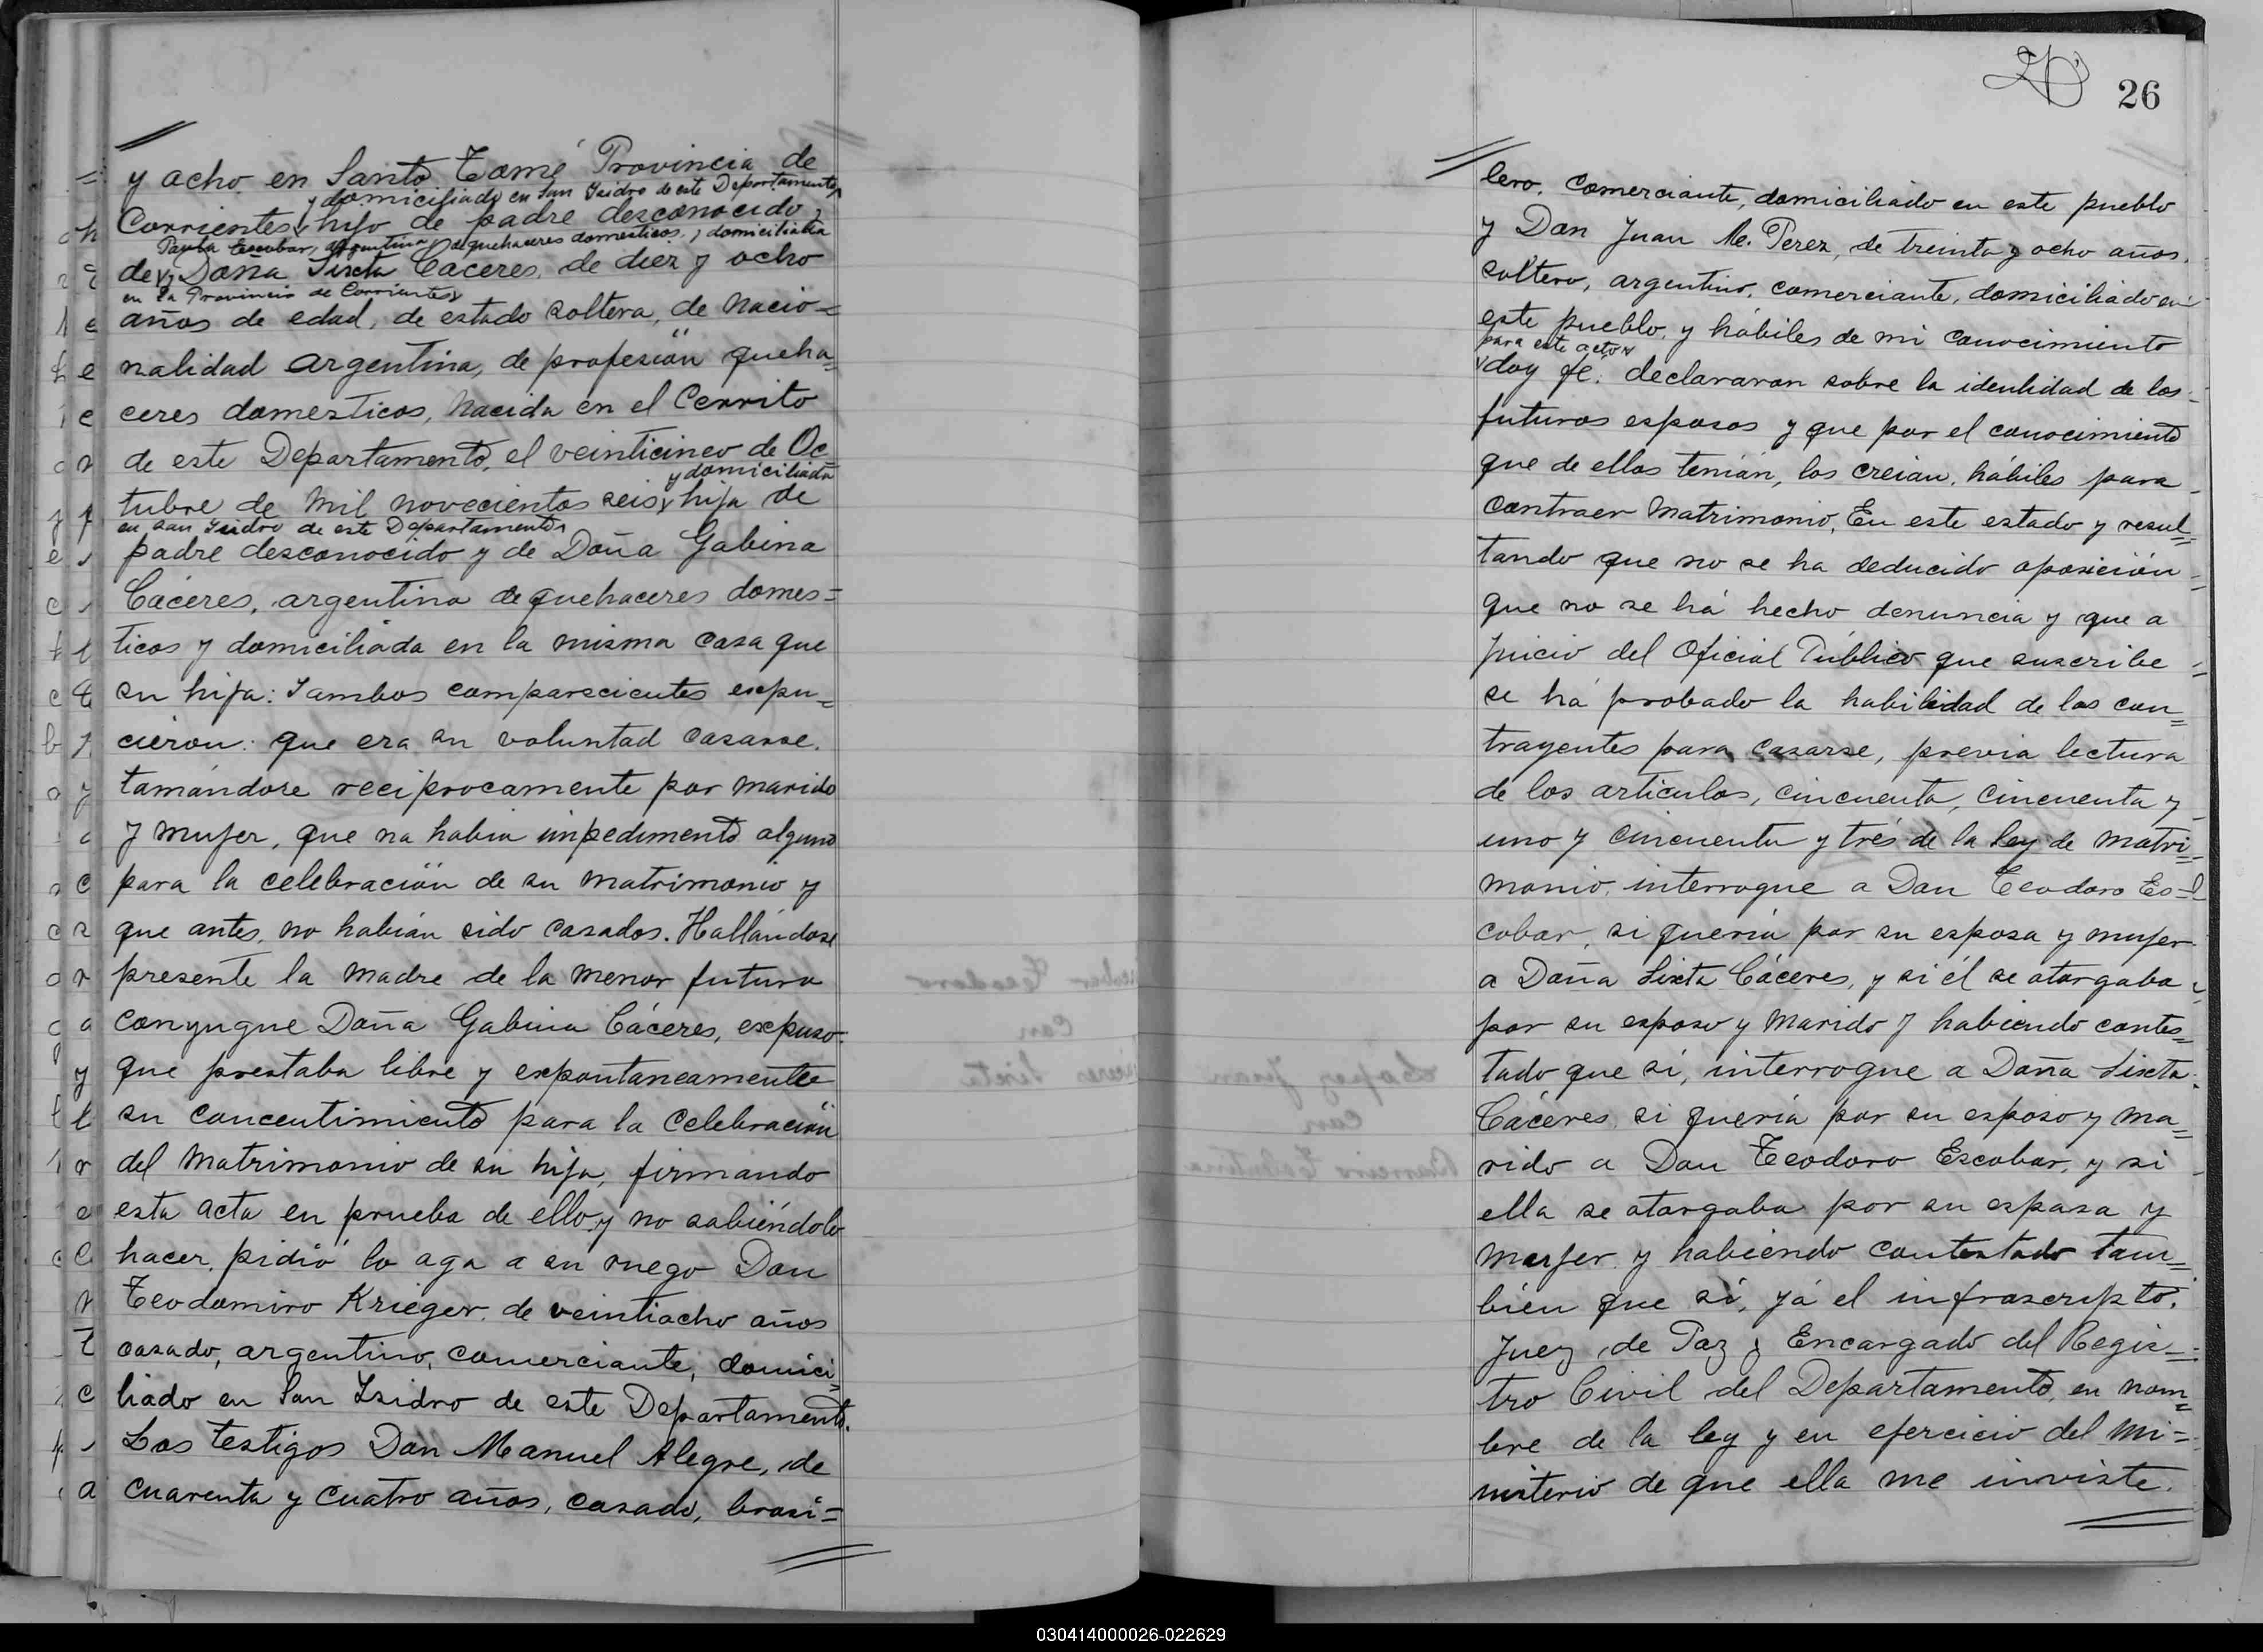 y ocho en Santo Tomé Provincia de
y domiciliado en San Isidro de este Departamento
Corrientes hijo de padre desconocido y
Paula Escobar, argentina, de quehaceres domesticos, y domiciliada
de y Doña Sixta Cáceres, de diez y ocho
en la Provincia de Corrientes
años de edad, de estado soltera, de nacio=
nalidad argentina, de profesión queha=
ceres domesticos, nacida en el Cerrito
de este Departamento, el veinticinco de Oc
y domiciliada
tubre de mil novecientos seis hija de
en San Isidro de este Departamento
padre desconocido y de Doña Gabina
Cáceres, argentina de quehaceres domes=
ticos y domiciliada en la misma casa que
su hija: Y ambos comparecientes expu=
cieron: que era su voluntad casarse,
tomándose reciprocamente por marido
y mujer, que no habia impedimento alguno
para la celebración de su matrimonio y
que antes, no habián sido casados. Hallándose
presente la madre de la menor futura
conyugue Doña Gabina Cáceres, expuso:
que prestaba libre y expontaneamente
su concentimiento para la celebración
del matrimonio de su hija, firmando
esta acta en prueba de ello y no sabiéndolo
hacer, pidió lo aga a su ruego Don
Teodomiro Krieger, de veintiocho años
casado, argentino, comerciante, domici=
liado en San Isidro de este Departamento.
Los testigos Don Manuel Alegre, de
cuarenta y cuatro años, casado, brasi=
26
lero, comerciante, domiciliado en este pueblo
y Don Juan M. Perez, de treinta y ocho años,
soltero, argentino, comerciante, domiciliado en
este pueblo, y hábiles de mi conocimiento
para este acto
doy fé: declararon sobre la identidad de los
futuros esposos y que por el conocimiento
que de ellos tenián, los creián, hábiles para
contraer matrimonio, En este estado y resul=
tando que no se ha deducido oposición
que no se há hecho denuncia y que a
juicio del Oficial Público que suscribe
se há probado la habilidad de los con=
trayentes para casarse, previa lectura
de los articulos, cincuenta, cincuenta y
uno y cincuenta y trés de la ley de matri=
monio, interrogue a Don Teodoro Es=
cobar, si queria por su esposa y mujer
a Doña Sixta Cáceres, y si él se otorgaba
por su esposo y marido y habiendo contes=
tado que si, interrogue a Doña Sixta
Cáceres, si quería por su esposo y ma=
rido a Don Teodoro Escobar, y si
ella se otorgaba por su esposa y
mujer y habiendo contestado tam=
bién que sí, yá el infrascripto,
Juez de Paz y Encargado del Regis=
tro Civil del Departamento, en nom=
bre de la ley y en ejercicio del mi=
nisterio de que ella me inviste.
030414000026-022629